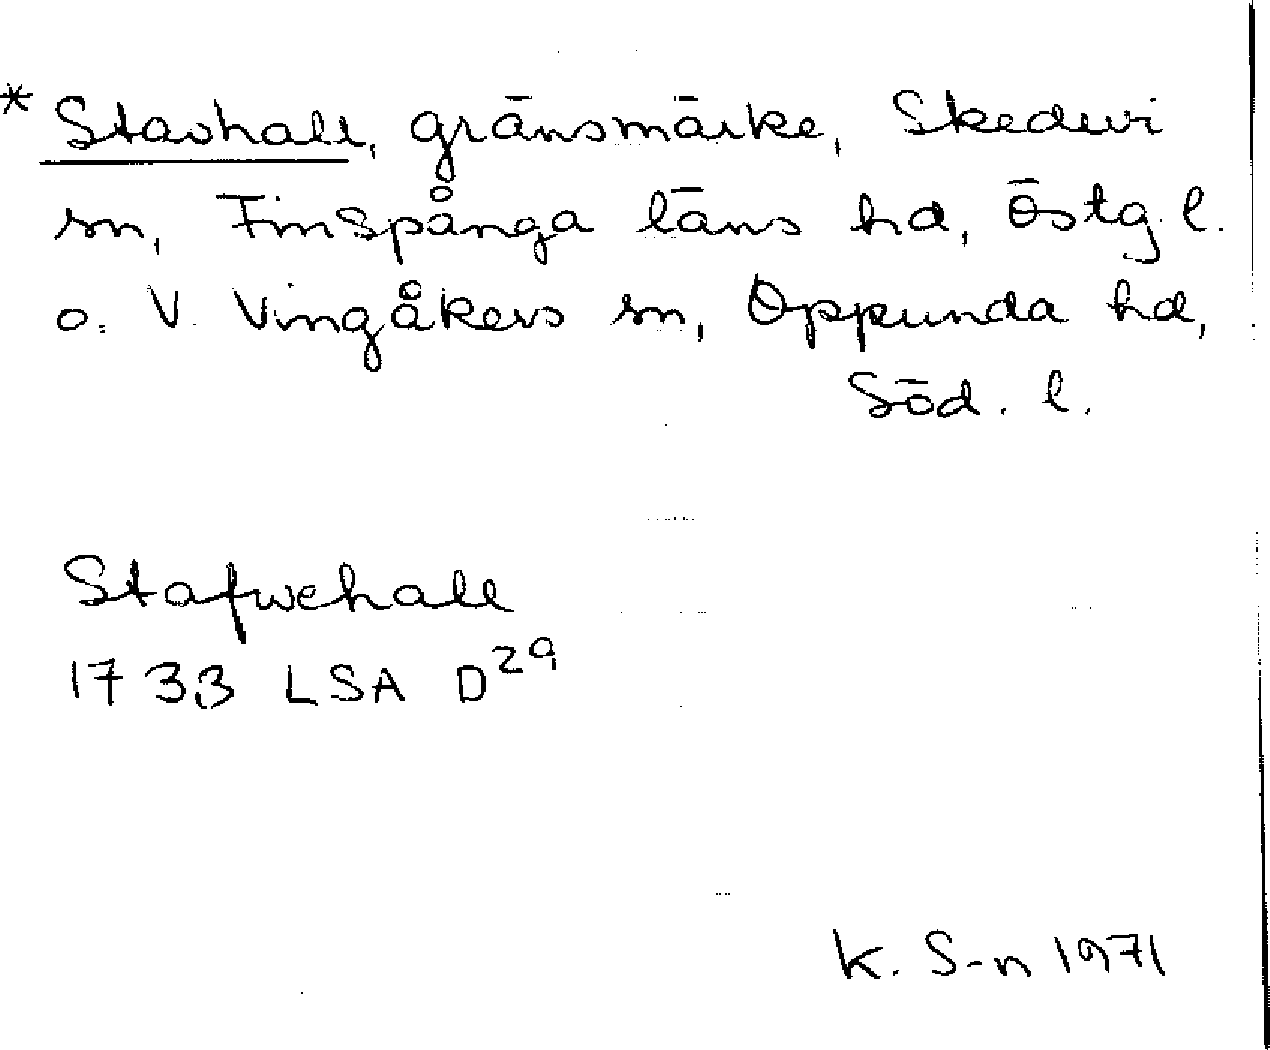 * Stavhall, gränsmärke, Skedevi
sn, Finspånga läns hd, Östg. l.
o. V. Vingåkers sn, Oppunda hd,
Söd. l.
Stafwehall
1733 LSA D29
K. S-n 1971